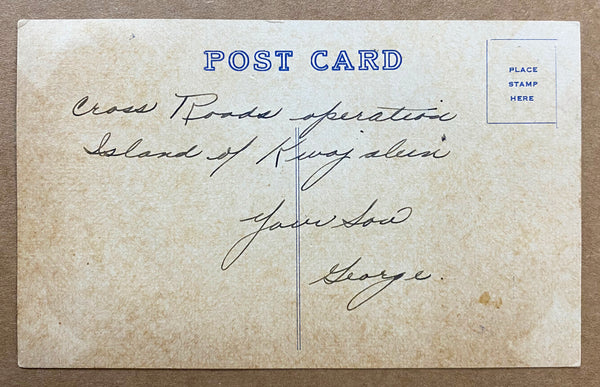 POST CARD
PLACE
STAMP
HERE
Cross Roads operation
Island of Kwajalein
Your Son
George.